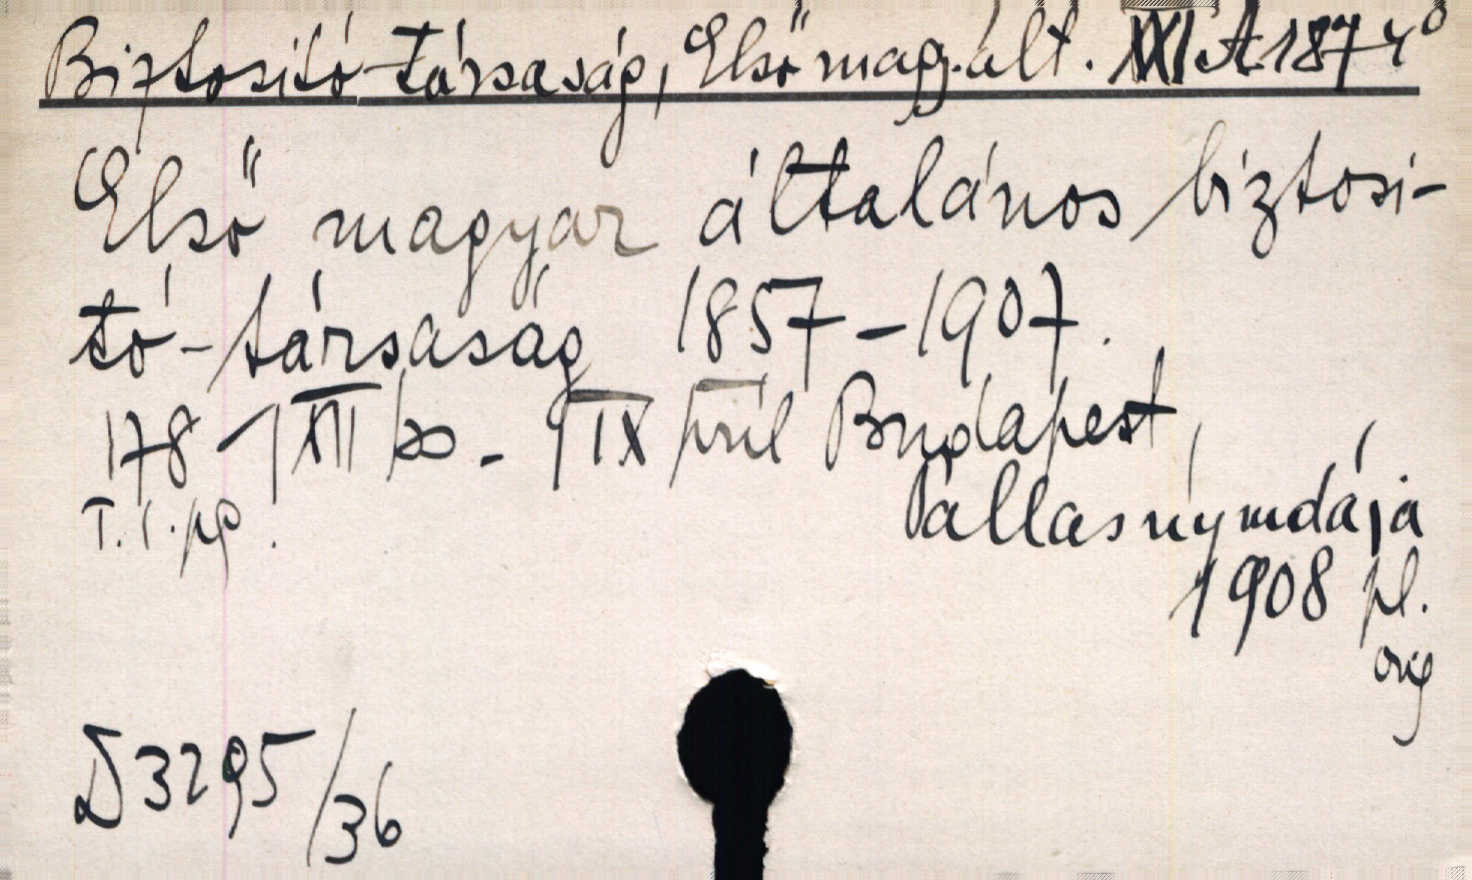 Biztositó-társaság, Első magy. ált. XXI A 1874 4°
Első magyar általános biztosi-
tó-társaság 1857-1907.
178 - 1 XII 
Budapest,
T. 1. pg.
Pallasnyomdája
1908 pl.
D 3295/36